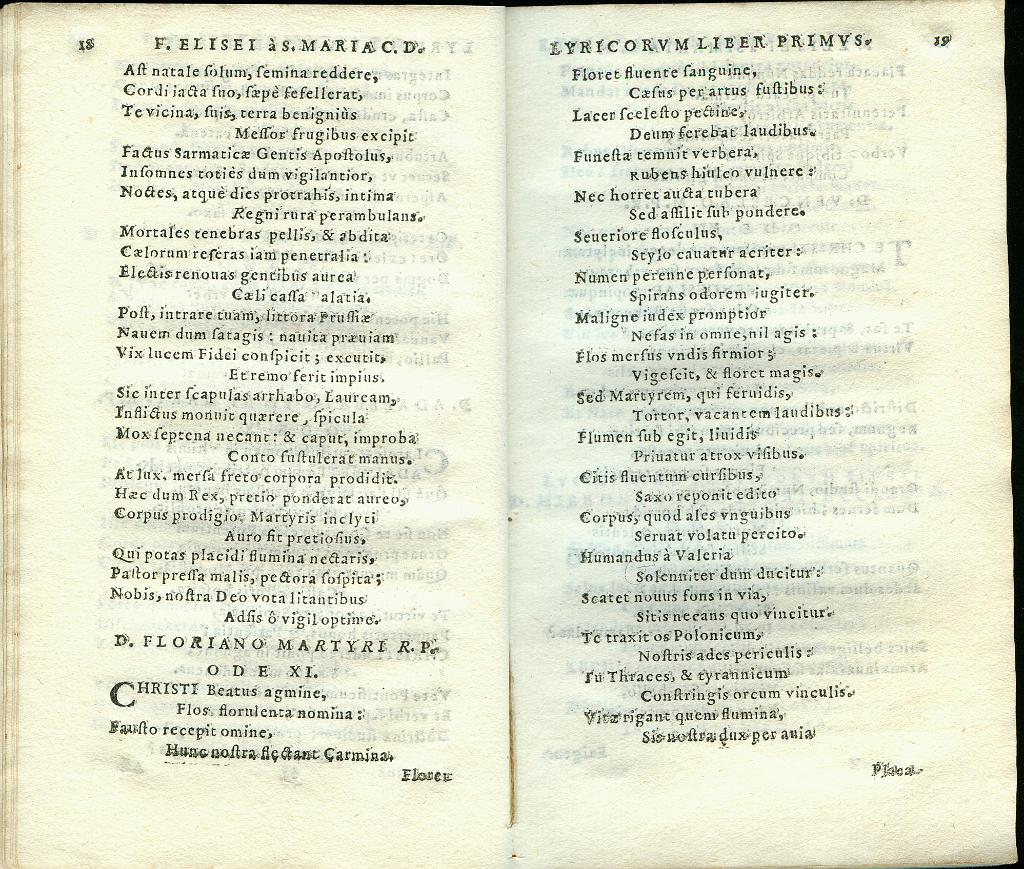 18 F. ELISEI à S. MARIA C. D.
Aſt natale ſolum, ſemina reddere,
Cordi iacta ſuo, ſæpè fefellerat,
Te vicina, ſuis, terra benigniùs
Meſſor frugibus excipit
Factus Sarmaticæ Gentis Apoſtolus,
Inſomnes totiès dum vigilantior,
Noctes, atquè dies protrahis, intima
Regni rura perambulans.
Mortales tenebras pellis, & abdita
Cælorum reſeras iam penetralia:
Electis renouas gentibus aurea
Cæli caſſa Palatia.
Poſt, intrare tuam, littora Pruſſiæ
Nauem dum ſatagis: nauita præuiam
Vix lucem Fidei conſpicit; excutit,
Et remo ferit impius.
Sic inter ſcapulas arrhabo, Lauream,
Inflictus monuit quærere, ſpicula
Mox ſeptena necant: & caput, improba
Conto ſuſtulerat manus.
At lux, merſa freto corpora prodidit.
Hæc dum Rex, pretio ponderat aureo,
Corpus prodigio, Martyris inclyti
Auro fit pretioſius,
Qui potas placidi flumina nectaris,
Paſtor preſſa malis, pectora ſoſpita:
Nobis, noſtra Deo vota litantibus
Adſis ô vigil optime.
D. FLORIANO MARTYRI R. P.
ODE XI.
CHRISTI Beatus agmine,
Flos, florulenta nomina:
Fauſto recepit omine,
Hunc noſtra flectant Carmina.
Floret
LYRICORVM LIBER PRIMVS. 19
Floret fluente ſanguine,
Cæſus per artus fuſtibus:
Lacer ſceleſto pectine,
Deum ferebat laudibus.
Funeſta temnit verbera,
Rubens hiulco vulnere:
Nec horret aucta tubera
Sed aſſilit ſub pondere.
Seueriore floſculus,
Stylo cauatur acriter:
Numen perenne perſonat,
Spirans odorem iugiter.
Maligne iudex promptior
Nefas in omne, nil agis:
Flos merſus vndis firmior;
Vigeſcit, & floret magis.
Sed Martyrem, qui feruidis,
Tortor, vacantem laudibus:
Flumen ſub egit, liuidis
Priuatur atrox viſibus.
Citis fluentum curſibus,
Saxo reponit edito
Corpus, quod ales vnguibus
Seruat volatu percito.
Humandus à Valeria
Solenniter dum ducitur:
Scatet nouus fons in via,
Sitis necans quo vincitur.
Te traxit os Polonicum,
Noſtris ades periculis:
Tu Thraces, & tyrannicum
Conſtringis orcum vinculis.
Vitæ rigant quem flumina,
Sis noſtra dux per auia
Placa-